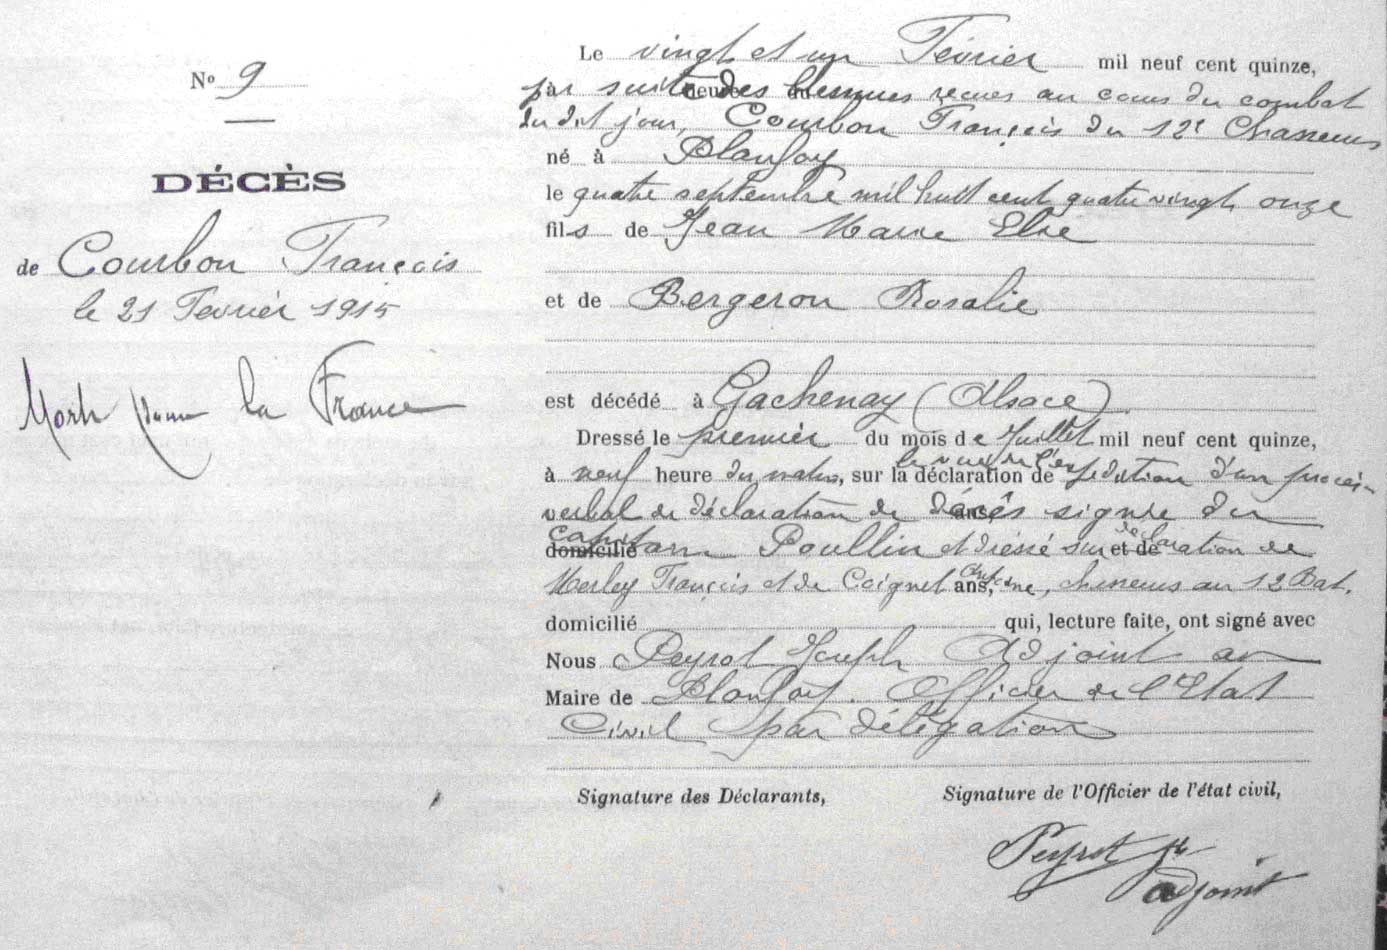 N° 9
DÉCÈS
de Courbon François
le 21 Février 1915
Mort pour la France
Le vingt et un Février mil neuf cent quinze,
par suite des blessures recues au cours du combat
du dit jour, Courbon François du 12e Chasseurs
né à Planfoy
le quatre septembre mil huit cent quatre vingt onze
fils de Jean Marie Elie
et de Bergeron Rosalie
est décédé à Gachenay (Alsace)
Dressé le premier du mois de Juillet mil neuf cent quinze,
à neuf heure du matin, sur la déclaration de l'expédition d'un procès
verbal de déclaration de décès signée du
domicilié capitaine Poullin et dressé sur déclaration de
Merley François et de Coignet, chasseurs au 12 Bat.
domicilié qui, lecture faite, ont signé avec
Nous Peyrot Joseph Adjoint au
Maire de Planfoy Officier de l'Etat
Civil par délégation
Signature des Déclarants, Signature de l'Officier de l'état civil,
Peyrot Jh
adjoint